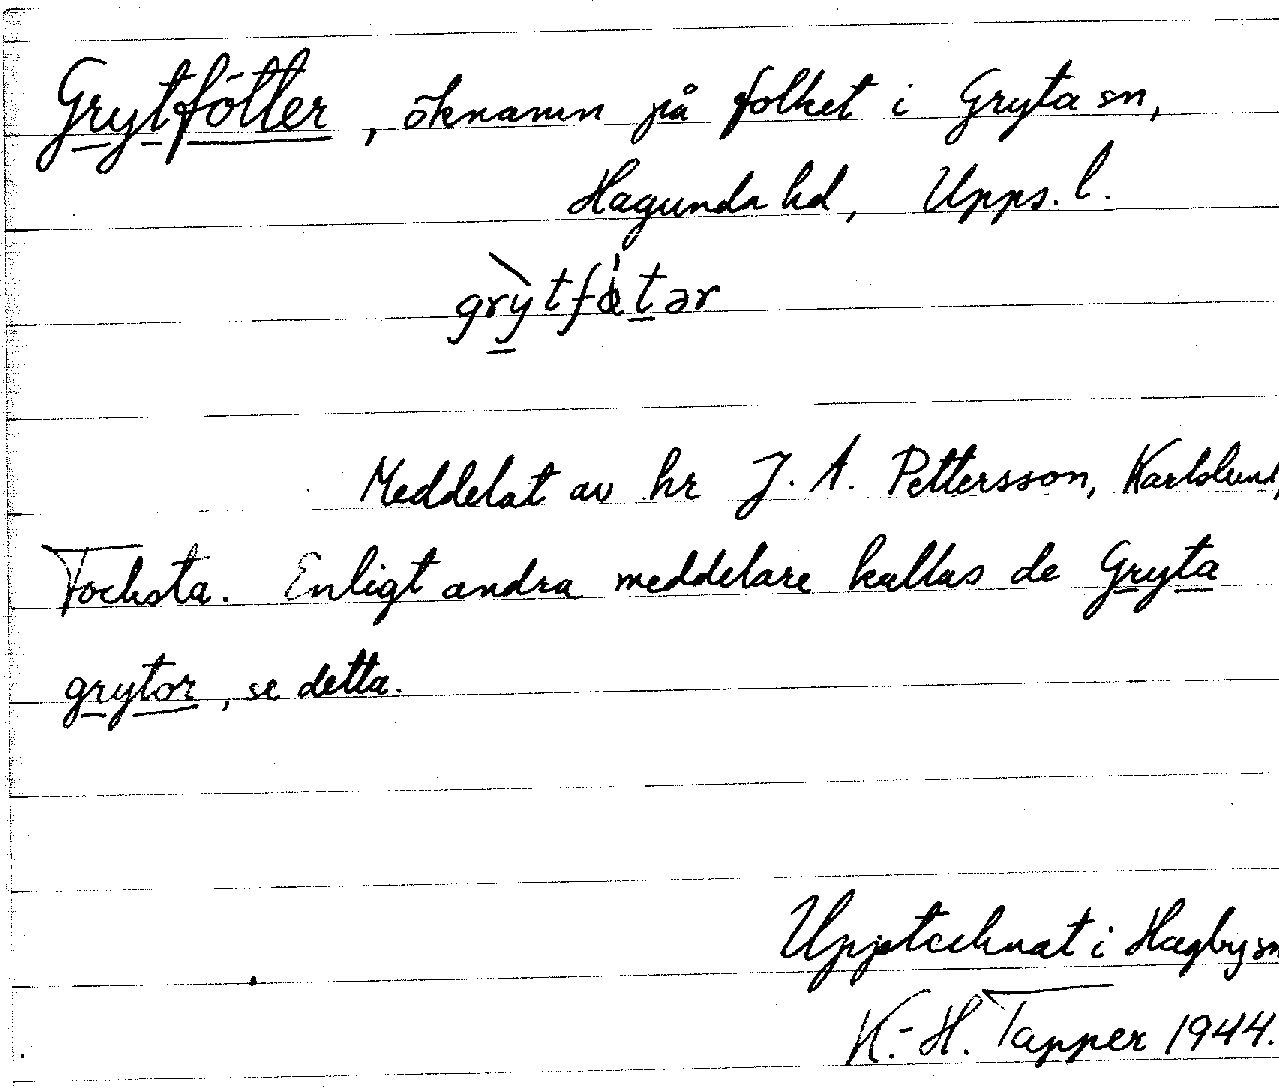 Grytfötter, öknamn på folket i Gryta sn,
Hagunda hd, Upps. l.
Meddelat av hr J. A. Pettersson, Karlslund,
Focksta. Enligt andra meddelare kallas de Gryta
grytor, se detta.
Upptecknat i Hagby sn
K.-H. Tapper 1944.